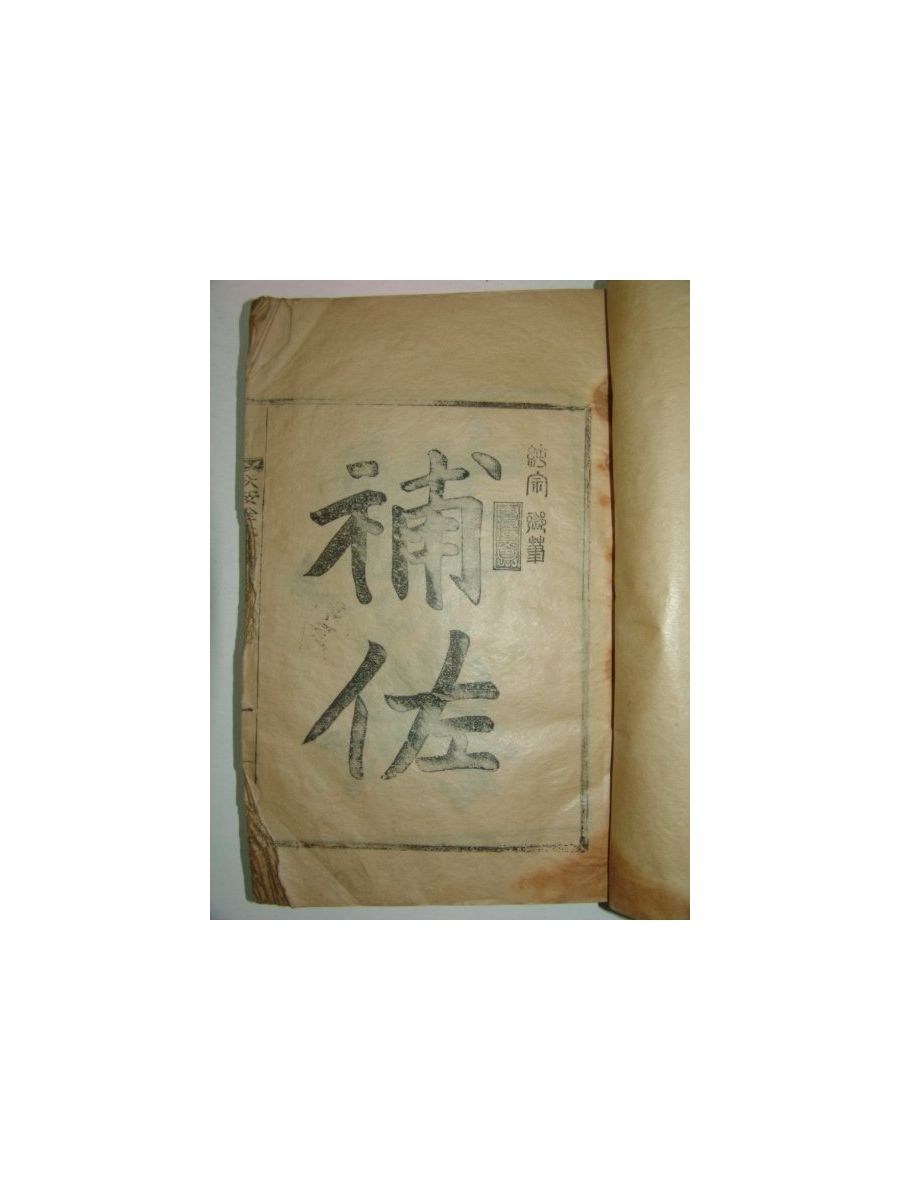 純宗 御筆
補佐